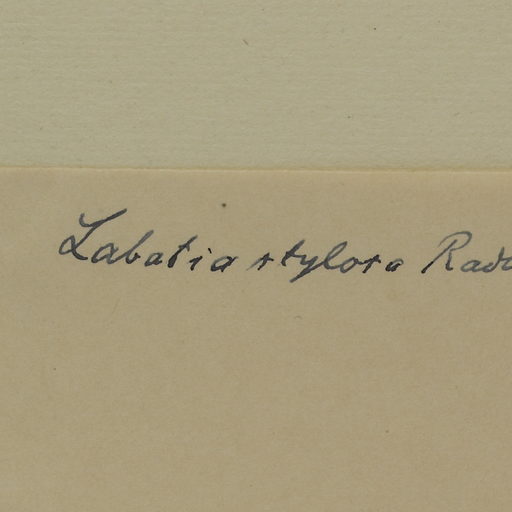 Labatia stylosa Radl